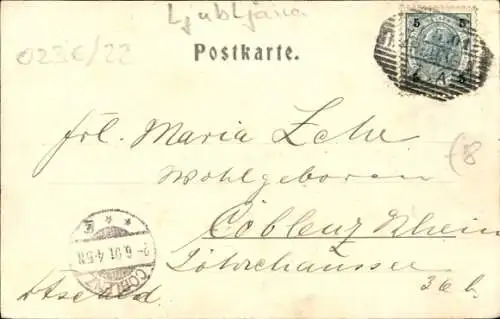 Ljubljana
023C/22
Postkarte.
5 5
A
Frl. Maria Zehe
Wohlgeboren
(8
Coblenz Rhein
2-6.01.4-5N
COBLENZ
Löhrchaussee
36 b.
Dtschld